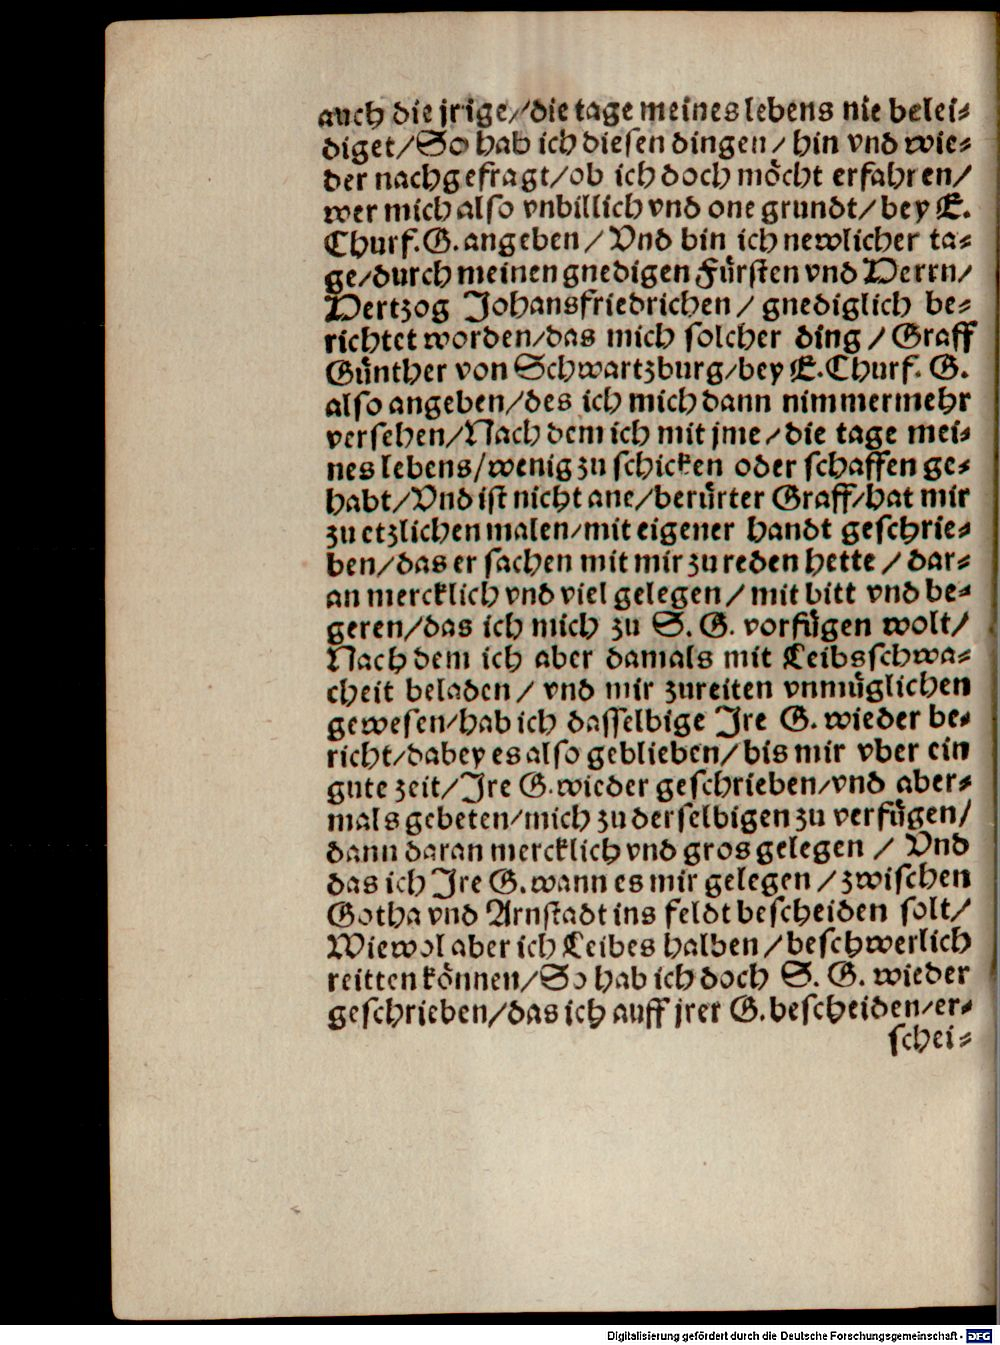 auch die jrige/die tage meines lebens nie belei⸗
diget/So hab ich diesen dingen/hin vnd wie⸗
der nachgefragt/ob ich doch möcht erfahren/
wer mich also vnbillich vnd one grundt/bey E.
Churf.G.angeben/Vnd bin ich newlicher ta⸗
ge/durch meinen gnedigen Fürsten vnd Herrn/
Hertzog Johansfriedrichen/gnediglich be⸗
richtet worden/das mich solcher ding/Graff
Günther von Schwartzburg/bey E.Churf. G.
also angeben/des ich mich dann nimmermehr
versehen/Nach dem ich mit jme/die tage mei⸗
nes lebens/wenig zu schicken oder schaffen ge⸗
habt/Vnd ist nicht ane/berürter Graff/hat mir
zu etzlichen malen/mit eigener handt geschrie⸗
ben/das er sachen mit mir zu reden hette/dar⸗
an mercklich vnd viel gelegen/mit bitt vnd be⸗
geren/das ich mich zu S. G. vorfügen wolt/
Nach dem ich aber damals mit Leibsschwa⸗
cheit beladen/vnd mir zureiten vnmüglichen
gewesen/hab ich dasselbige Jre G. wieder be⸗
richt/dabey es also geblieben/bis mir vber ein
gute zeit/Jre G.wieder geschrieben/vnd aber⸗
mals gebeten/mich zu derselbigen zu verfügen/
dann daran mercklich vnd gros gelegen/Vnd
das ich Jre G.wann es mir gelegen/zwischen
Gotha vnd Arnstadt ins feldt bescheiden solt/
Wiewol aber ich Leibes halben/beschwerlich
reitten können/So hab ich doch S. G. wieder
geschrieben/das ich auff jrer G.bescheiden/er⸗
schei⸗
Digitalisierung gefördert durch die Deutsche Forschungsgemeinschaft - DFG